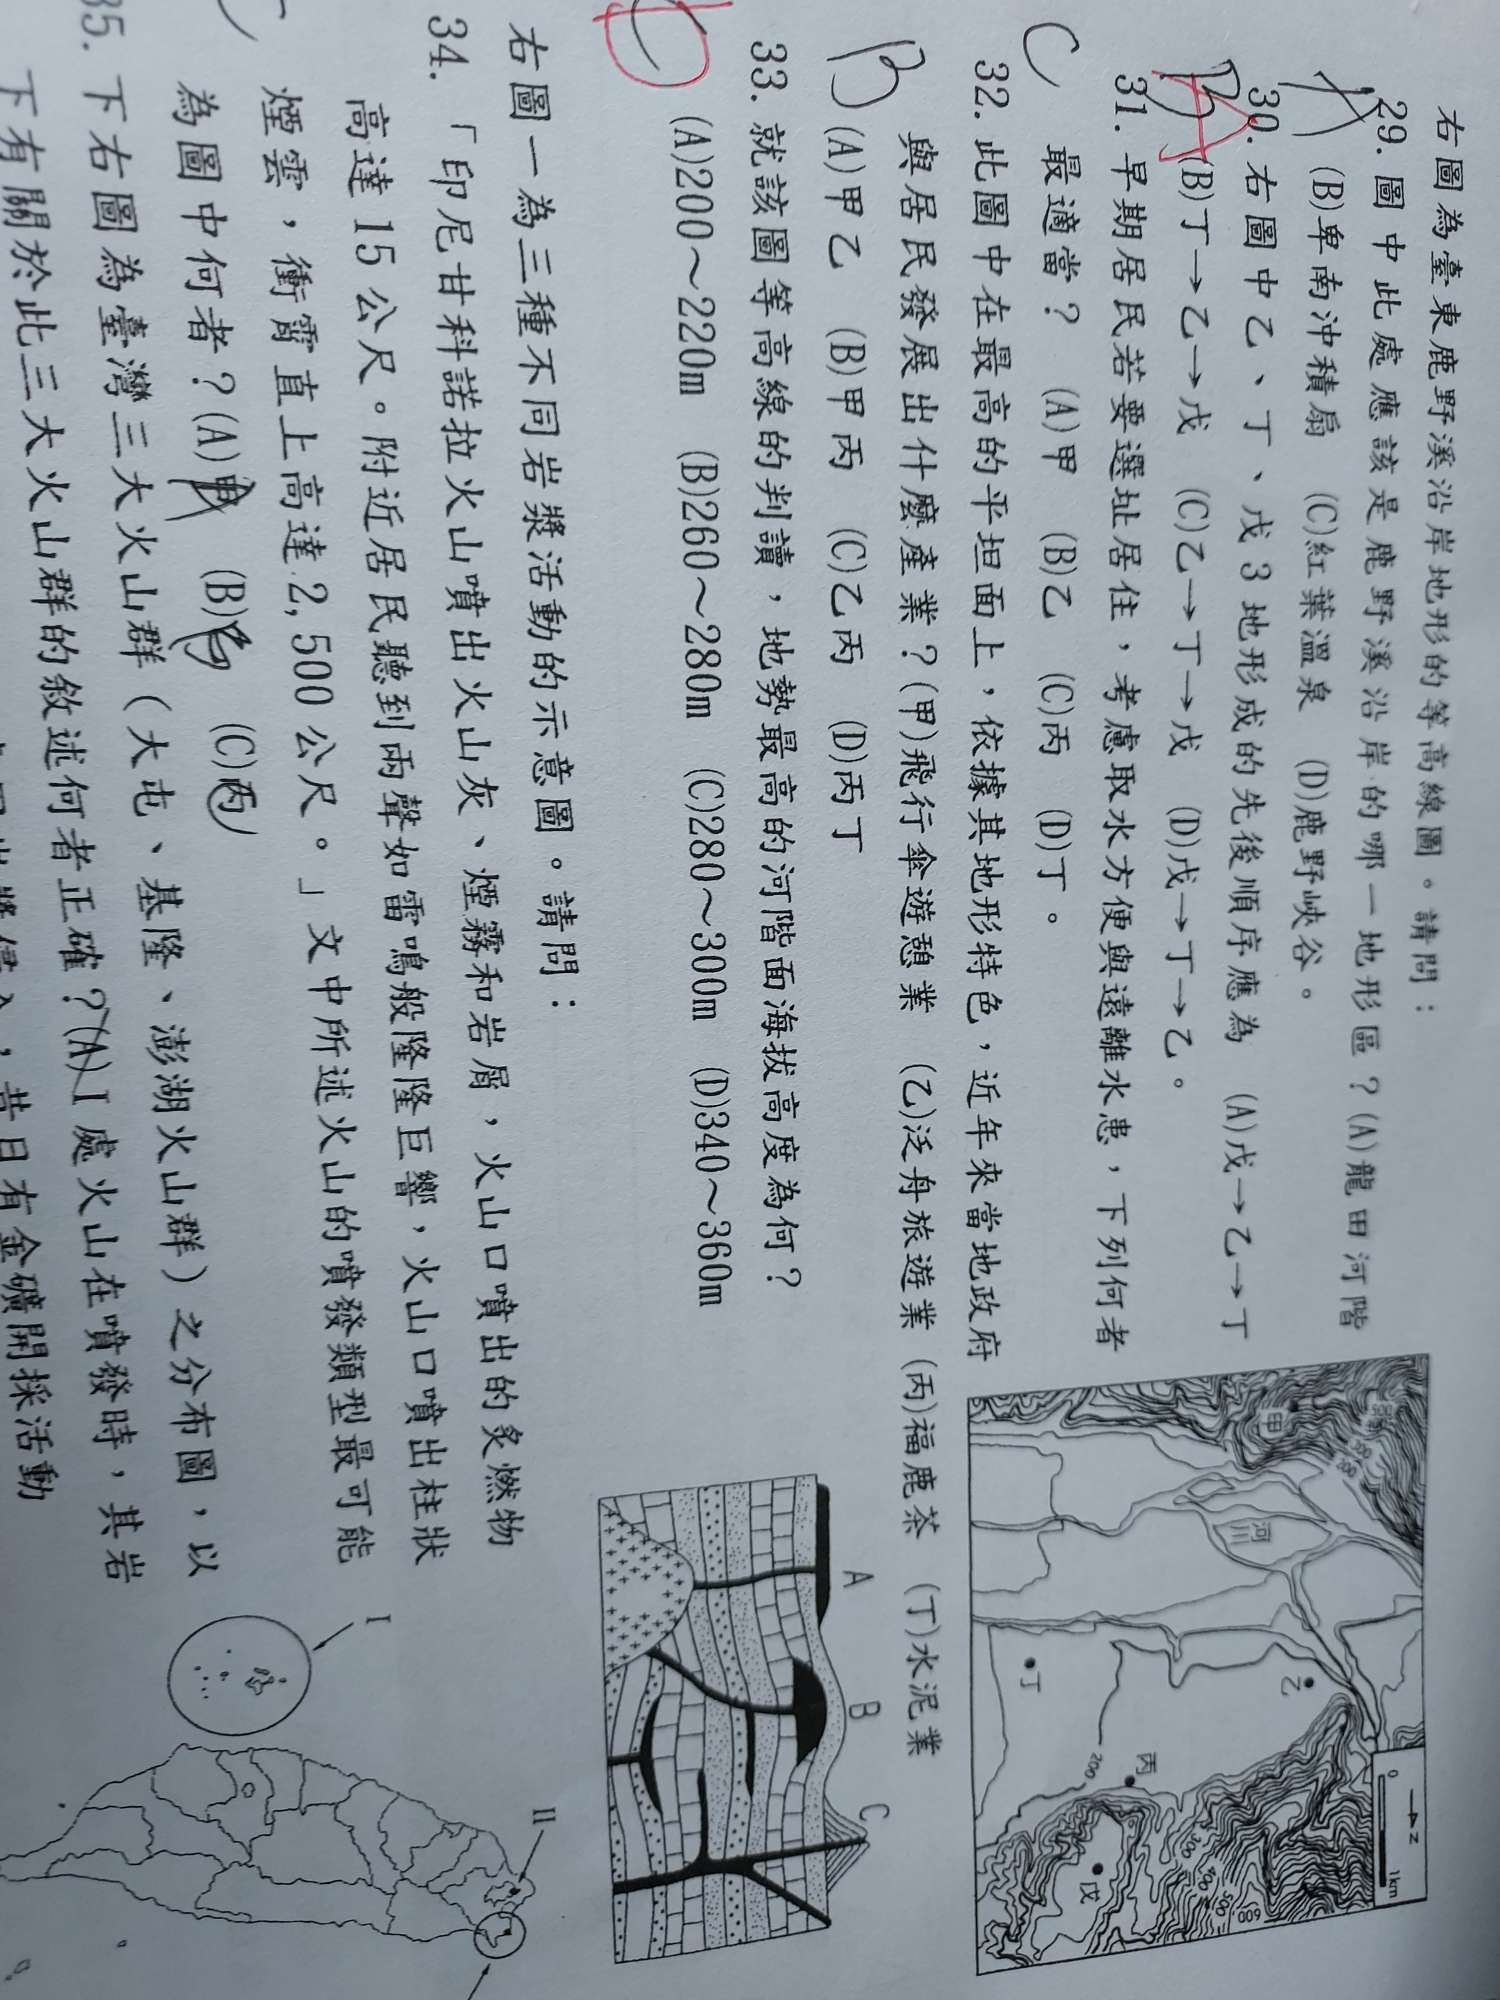 右圖為臺東鹿野溪沿岸地形的等高線圖。請問：
29. 圖中此處應該是鹿野溪沿岸的哪一地形區？(A)龍田河階
(B)卑南沖積扇 (C)紅葉溫泉 (D)鹿野峽谷。
30. 右圖中乙、丁、戊3地形成的先後順序應為 (A)戊→乙→丁
(B)丁→乙→戊 (C)乙→丁→戊 (D)戊→丁→乙。
31. 早期居民若要選址居住，考慮取水方便與遠離水患，下列何者
C 最適當？ (A)甲 (B)乙 (C)丙 (D)丁。
32. 此圖中在最高的平坦面上，依據其地形特色，近年來當地政府
與居民發展出什麼產業？(甲)飛行傘遊憩業 (乙)泛舟旅遊業 (丙)福鹿茶 (丁)水泥業
B (A)甲乙 (B)甲丙 (C)乙丙 (D)丙丁
33. 就該圖等高線的判讀，地勢最高的河階面海拔高度為何？
(A)200～220m (B)260～280m (C)280～300m (D)340～360m
右圖一為三種不同岩漿活動的示意圖。請問：
34. 「印尼甘科諾拉火山噴出火山灰、煙霧和岩屑，火山口噴出的炙燃物
高達15公尺。附近居民聽到兩聲如雷鳴般隆隆巨響，火山口噴出柱狀
煙雲，衝霄直上高達2,500公尺。」文中所述火山的噴發類型最可能
為圖中何者？(A)甲 (B) (C)丙
35. 下右圖為臺灣三大火山群（大屯、基隆、澎湖火山群）之分布圖，以
下有關於此三大火山群的敘述何者正確？(A)I處火山在噴發時，其岩
昔日有金礦開採活動
甲
500
300
200
河川
乙
丁
丙
200
戊
300
400
500
600
N
0
1km
A
B
C
I
II